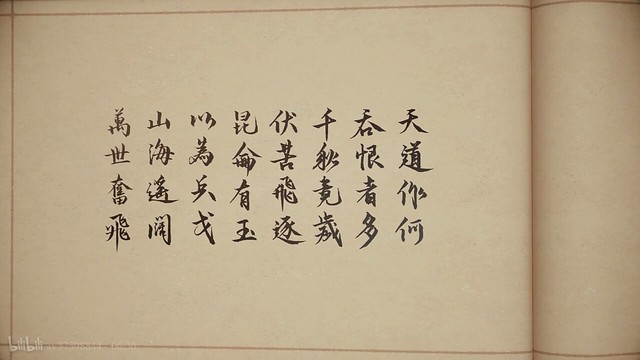 天道作何
吞恨者多
千秋竟歲
伏苦飛逐
昆侖有玉
以為兵戈
山海遙闊
萬世奮飛
bilibili